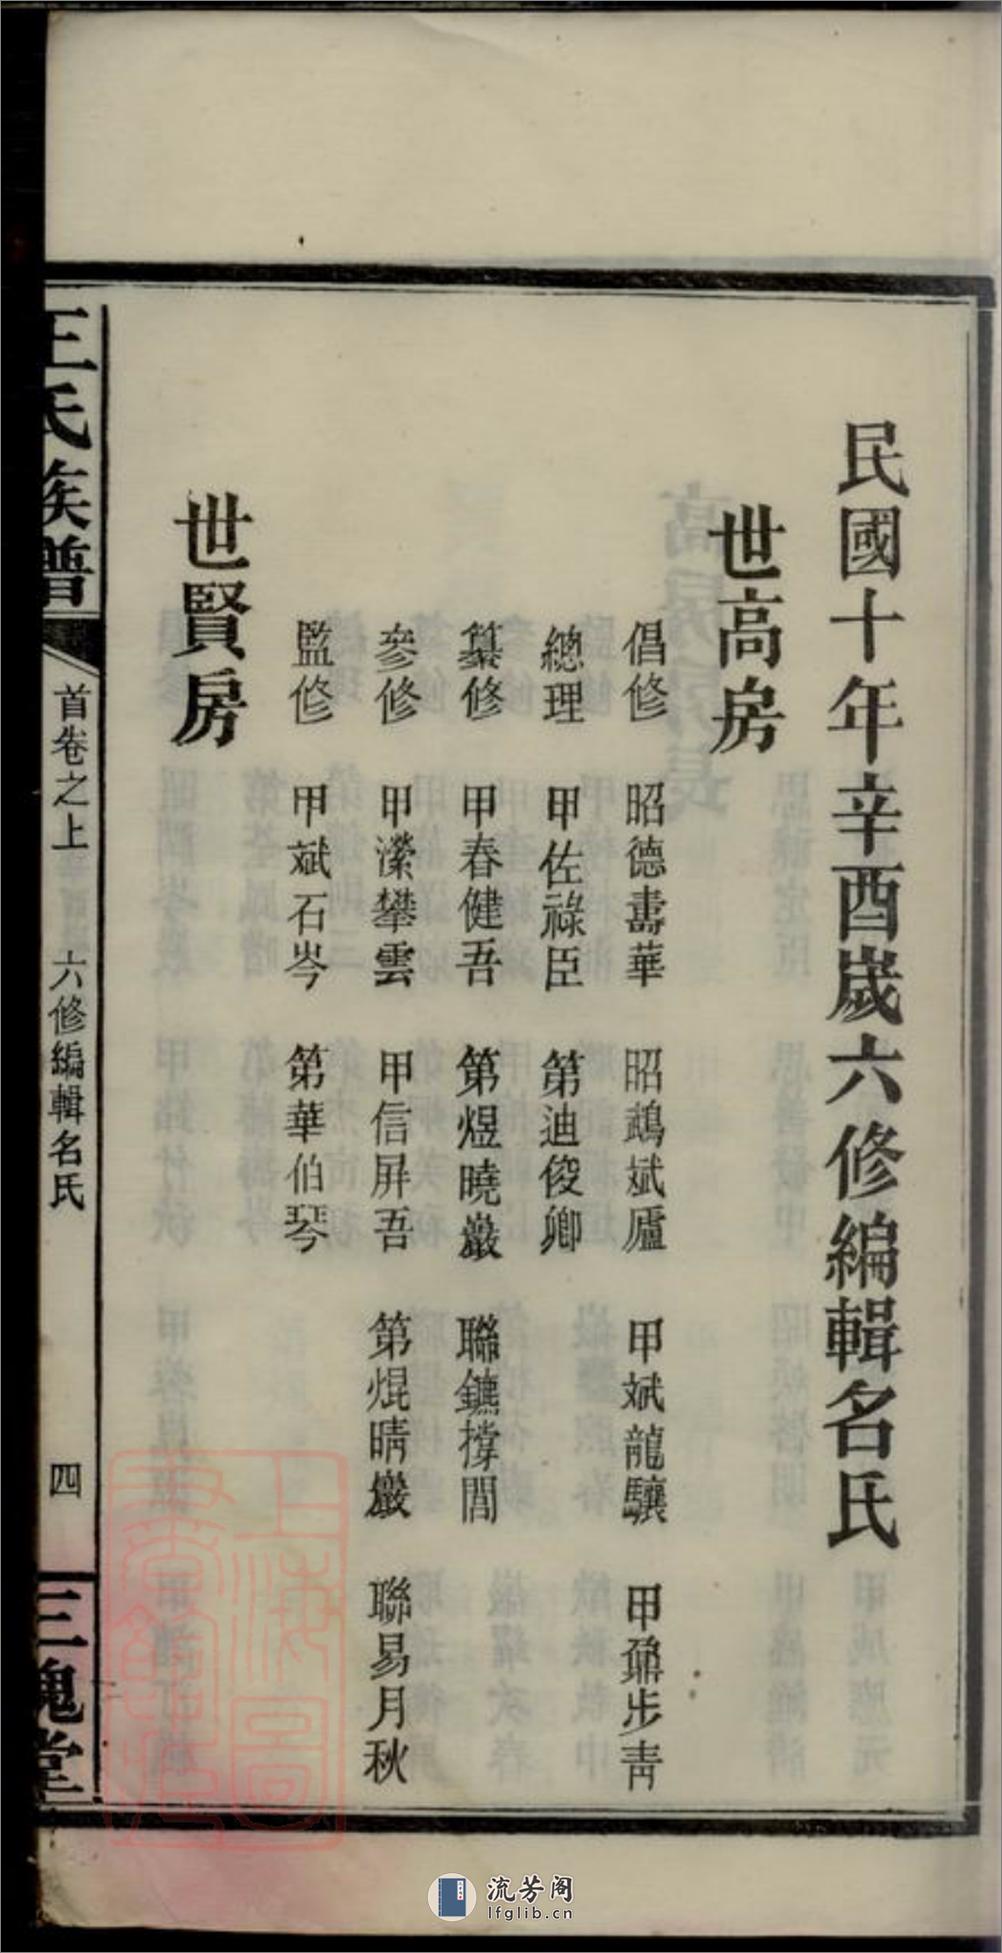 民國十年辛酉歲六修編輯名氏
世高房
倡修 昭德壽華 昭鵡斌廬 甲斌龍驤 甲鼐步青
總理 甲佐祿臣 第迪俊卿
纂修 甲春健吾 第煜曉巖 聯鑣撐閶
參修 甲瀠攀雲 甲信屏吾 第焜晴巖 聯易月秋
監修 甲斌石岑 第華伯琴
世賢房
王氏族譜 首卷之上 六修編輯名氏 四 三槐堂
上海圖書館藏
流芳阁
lfglib.cn